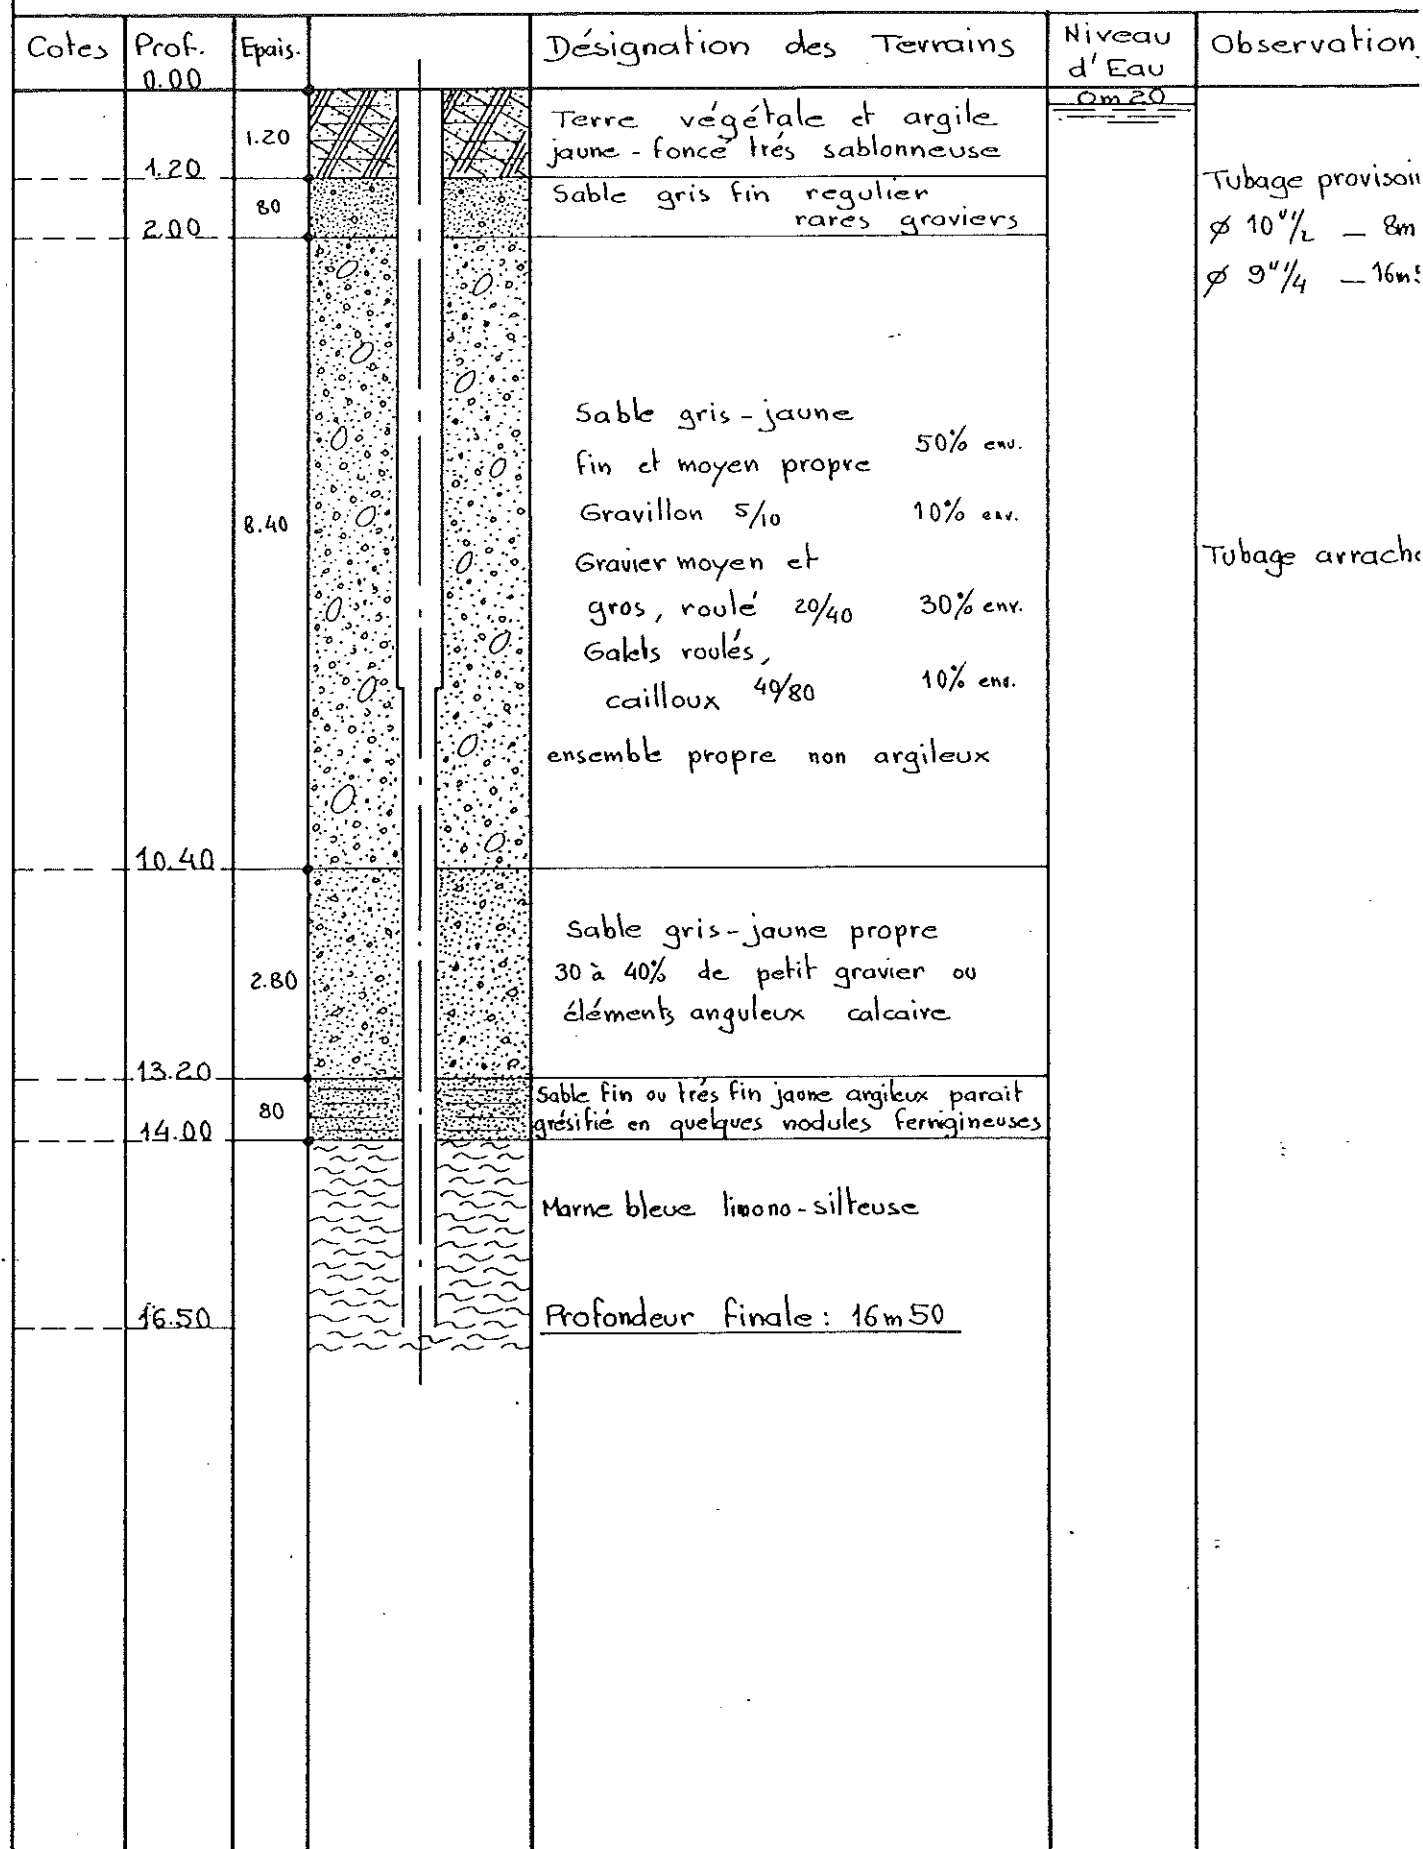 Cotes Prof. Epais. Désignation des Terrains Niveau d'Eau Observation
0.00
0m20
1.20
Terre végétale et argile
jaune-foncé trés sablonneuse
1.20
80
Sable gris fin regulier
rares graviers
2.00
Tubage
Ø 10"1/2 — 8m
Ø 9"1/4
8.40
Sable gris-jaune
fin et moyen propre 50% env.
Gravillon 5/10 10% env.
Gravier moyen et
gros, roulé 20/40 30% env.
Galets roulés,
cailloux 40/80 10% env.
ensemble propre non argileux
Tubage
10.40
2.80
Sable gris-jaune propre
30 à 40% de petit gravier ou
éléments anguleux calcaire
13.20
80
Sable fin ou trés fin jaune argileux parait
grésifié en quelques nodules ferrigineuses
14.00
Marne bleue limono-silteuse
16.50
Profondeur finale : 16m50